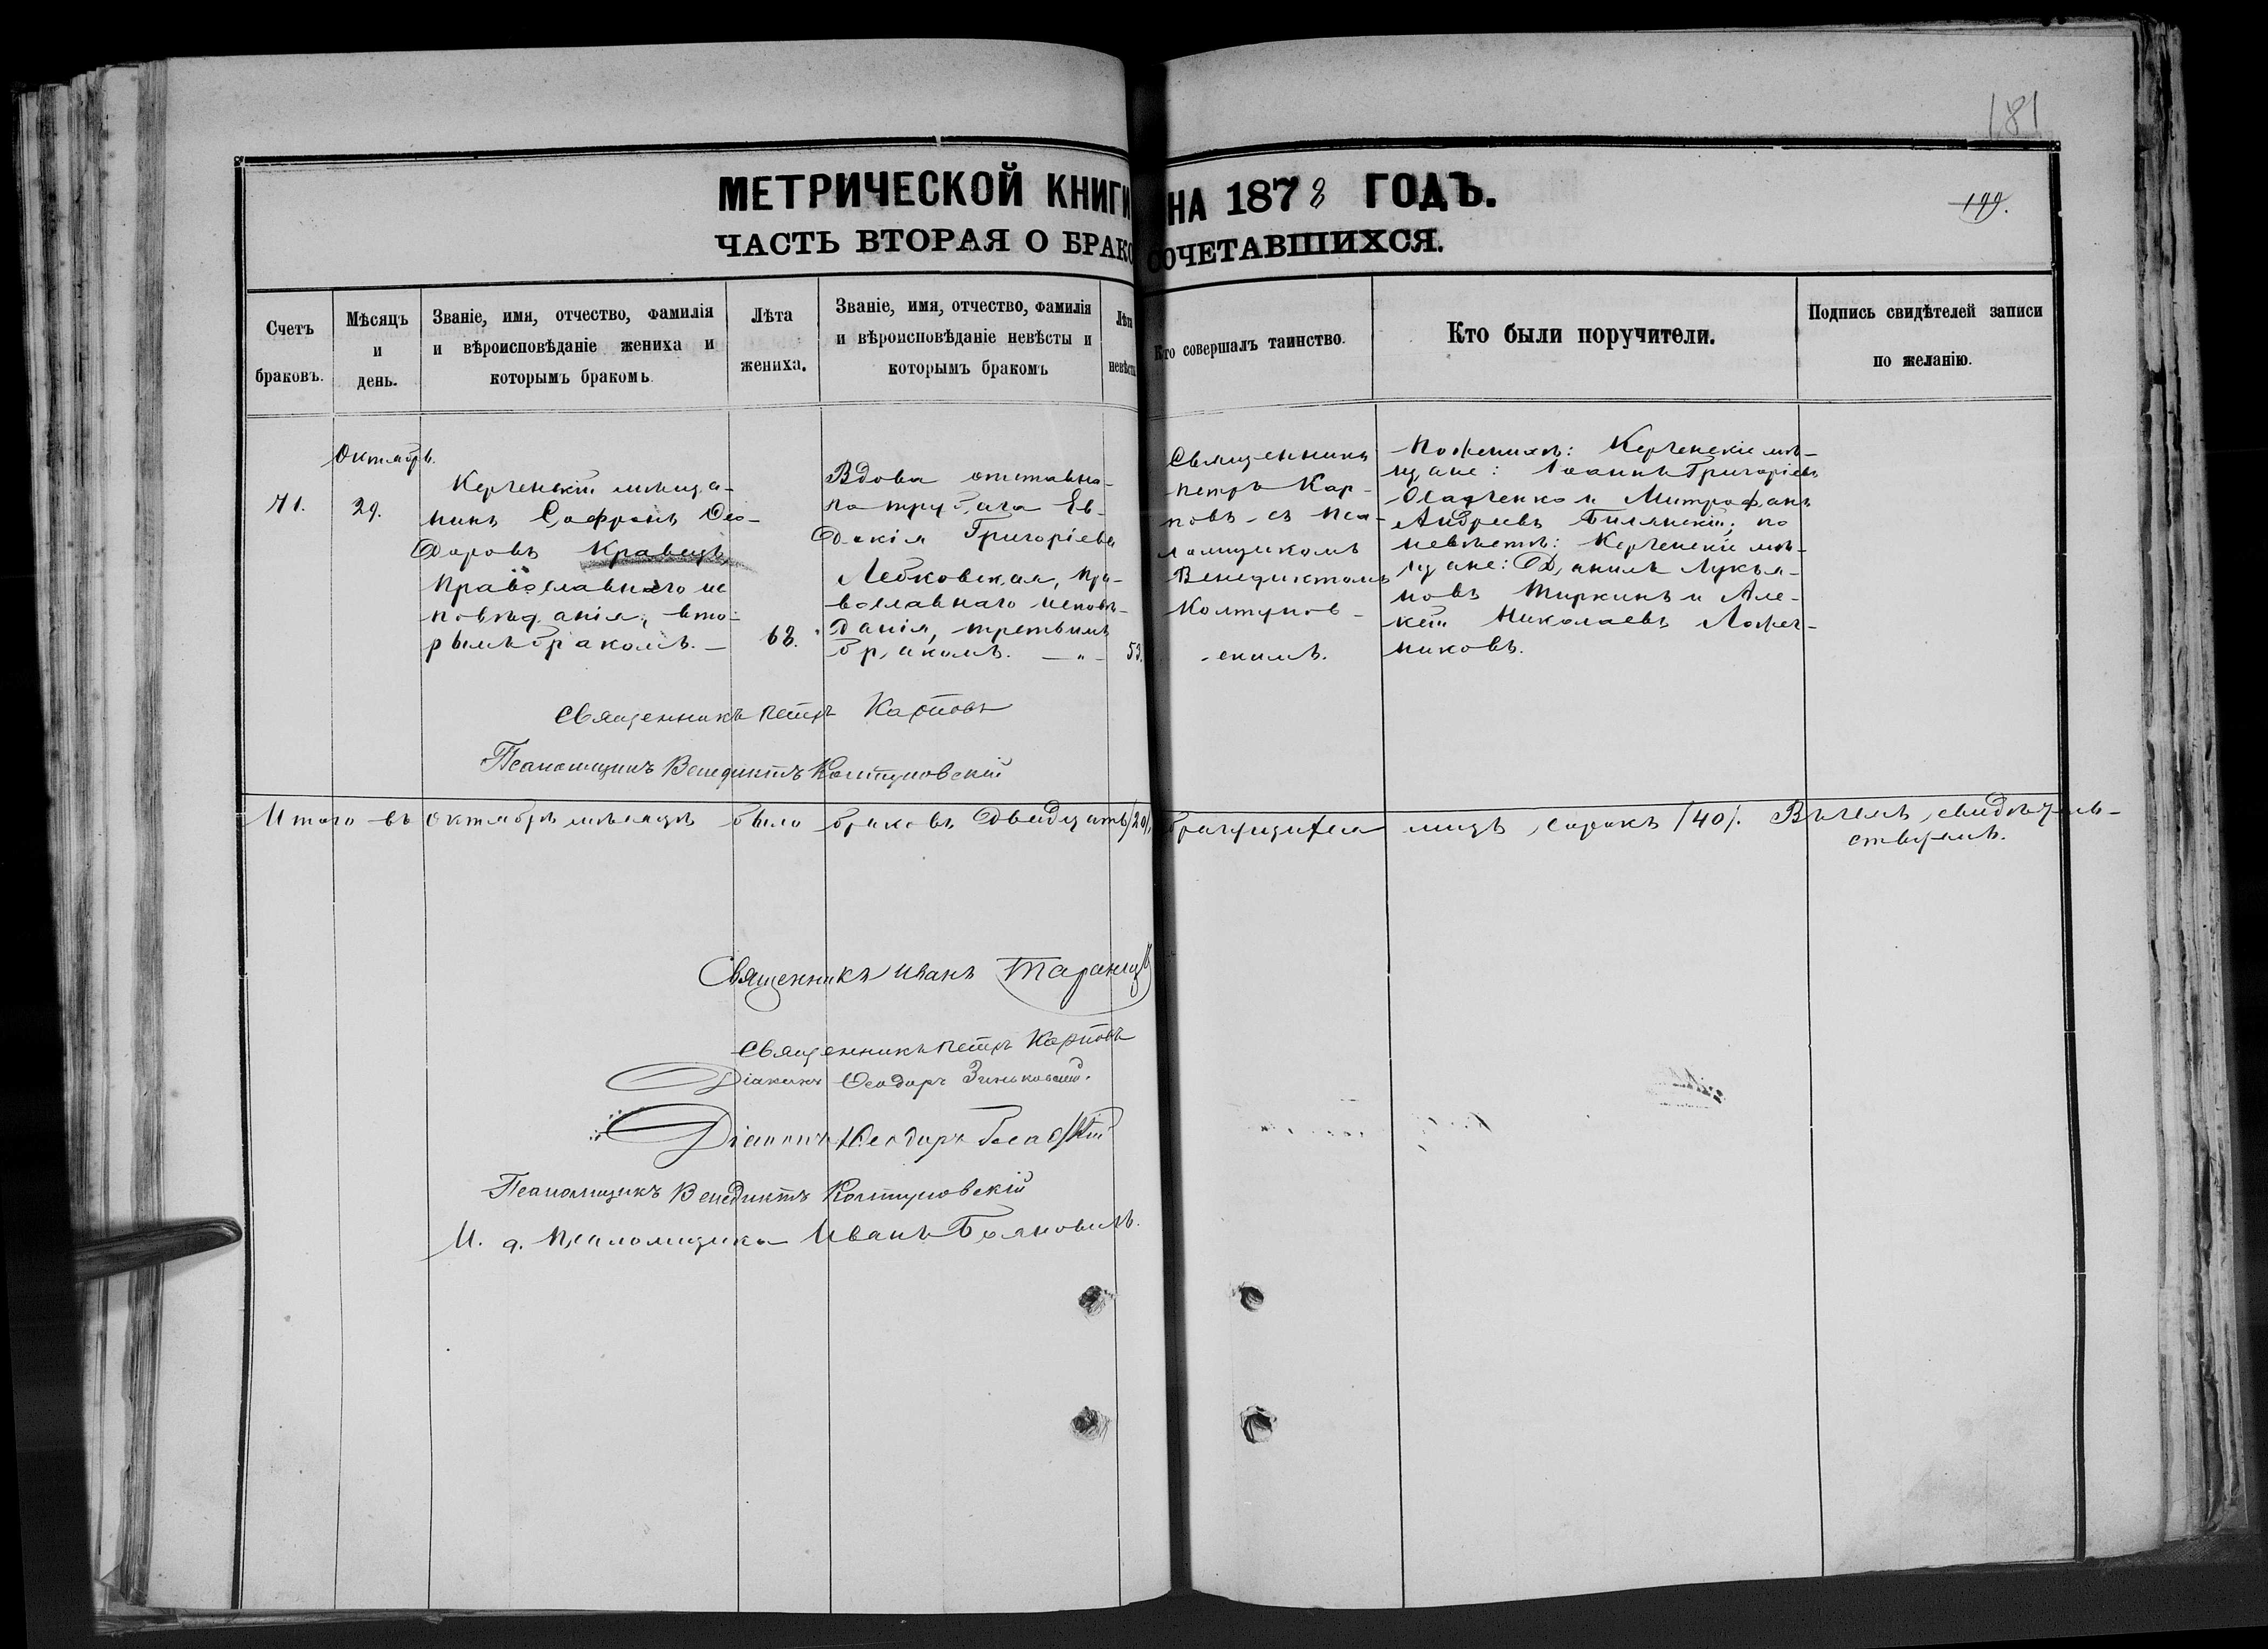 181
МЕТРИЧЕСКОЙ КНИГИ НА 1878 ГОДЪ.
199.
ЧАСТЬ ВТОРАЯ О БРАКОСОЧЕТАВШИХСЯ.
Счетъ
браковъ.
Мѣсяцъ
и
день.
Званіе, имя, отчество, фамилія
и вѣроисповѣданіе жениха и
которымъ бракомъ
Лѣта
жениха.
Званіе, имя, отчество, фамилія
и вѣроисповѣданіе невѣсты и
которымъ бракомъ
Лѣта
невѣсты
Кто совершалъ таинство.
Кто были поручители.
Подпись свидѣтелей записи
по желанію.
71.
Октябрь.
29.
Керченскій мѣща-
нинъ Софронъ Ѳео-
доровъ Кравецъ,
православнаго ис
повѣданія, вто-
рымъ бракомъ. —
68.
Вдова отставна-
го трубача Ев-
докія Григоріева
Лебковская, пра-
вославнаго исповѣ-
данія, третьимъ
бракомъ. — „ —
53.
Священникъ
Петръ Кар-
повъ съ пса-
ломщикомъ
Венедиктомъ
Колтунов-
-скимъ.
По женихѣ: Керченскіе мѣ-
щане: Іоаннъ Григоріевъ
Осадченко и Митрофанъ
Андреевъ Билянскій; по
невѣстѣ: Керченскіе мѣ-
щане: Даніилъ Лукья-
новъ Тиркинъ и Але-
ксѣй Николаевъ Ложеч-
никовъ.
Священникъ Петръ Карповъ
Псаломщикъ Венедиктъ Колтуновскій
Итого въ Октябрѣ мѣсяцѣ было браковъ двадцать /20/, брачущихся лицъ сорокъ /40/. Въ чемъ свидѣтель-
ствуемъ.
Священникъ Иванъ
Священникъ Петръ Карповъ
Діаконъ Ѳеодоръ Зиньковскій.
Діаконъ Ѳеодоръ
Псаломщикъ Венедиктъ Колтуновскій
И. д. Псаломщика Иванъ Бояновичъ.